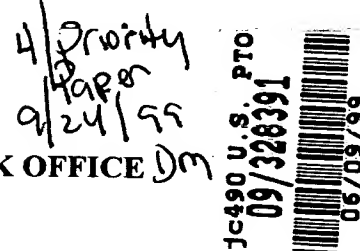 4/Priority
Paper
9/24/99
K OFFICE DM
jc490 U.S. PTO
09/328391
06/09/99